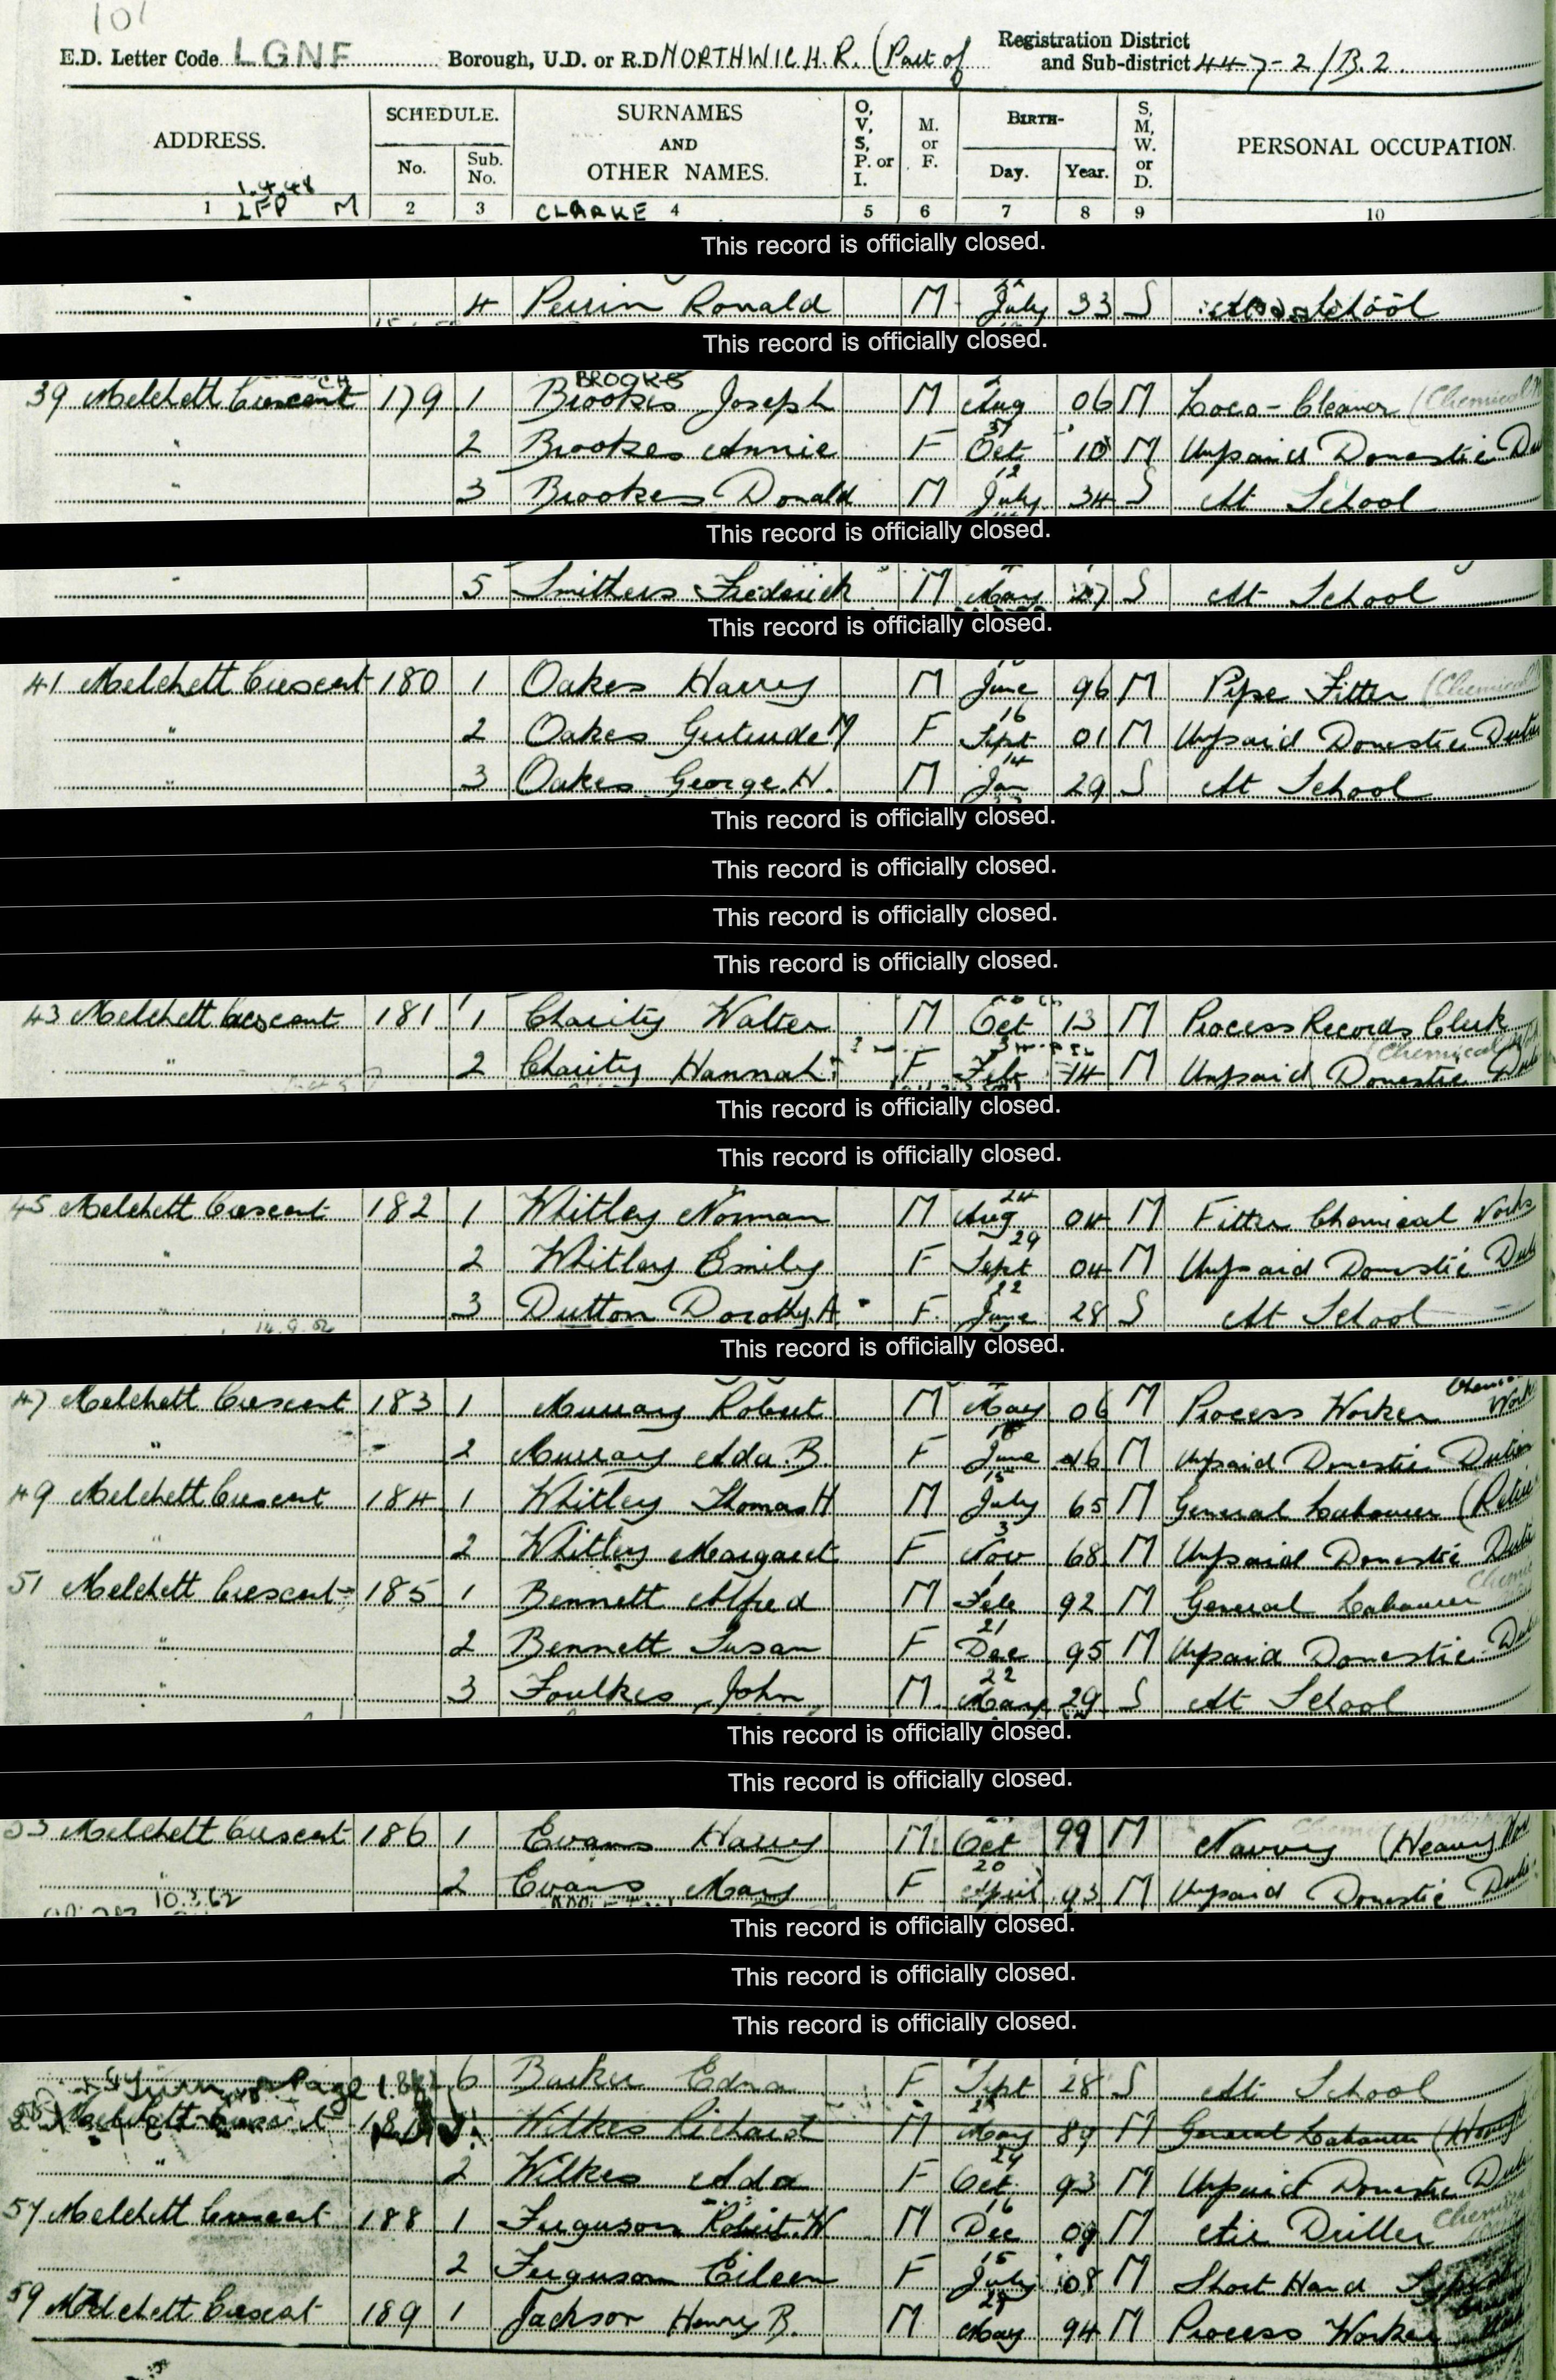 101
E.D. Letter Code LGNF Borough, U.D. or R.D NORTHWICH. R. (Part of Registration District and Sub-district 447-2/B.2
ADDRESS. SCHEDULE. No. Sub. No. SURNAMES AND OTHER NAMES. O, V, S, P. or I. M. or F. BIRTH- Day. Year. S, M, W. or D. PERSONAL OCCUPATION.
1.4.48
1 LFP M 2 3 CLARKE 4 5 6 7 8 9 10
This record is officially closed.
" 4 Perrin Ronald M July 33 S School
This record is officially closed.
BROOKS
39 Melchett Crescent 179 1 Brookes Joseph M Aug 06 M Loco-Cleaner (Chemical
" 2 Brookes Annie F 31 Oct 10 M Unpaid Domestic Du
" 3 Brookes Donald M 12 July 34 S At School
This record is officially closed.
" 5 Smithers Frederick M May 27 S At School
This record is officially closed.
41 Melchett Crescent 180 1 Oakes Harry M June 96 M Pipe Fitter (Chemical
" 2 Oakes Gertrude M F 16 Sept 01 M Unpaid Domestic Duties
" 3 Oakes George. H. M 14 Jan 29 S At School
This record is officially closed.
This record is officially closed.
This record is officially closed.
This record is officially closed.
43 Melchett Crescent 181 1 Charity Walter M Oct 13 M Process Records Clerk
(Chemical
" 2 Charity Hannah F 3 Feb 14 M Unpaid Domestic Du
This record is officially closed.
This record is officially closed.
45 Melchett Crescent 182 1 Whitley Norman M 24 Aug 04 M Fitter Chemical Works
" 2 Whitley Emily F 29 Sept 04 M Unpaid Domestic Duti
" 3 Dutton Dorothy. A F. 22 June 28 S At School
14.9.52
This record is officially closed.
47 Melchett Crescent 183 1 Murray Robert M May 06 M Process Worker Work
" 2 Murray Ada. B F June M Unpaid Domestic Duties
49 Melchett Crescent 184 1 Whitley Thomas H M 15 July 65 M General Labourer (Retir
" 2 Whitley Margaret F 3 Nov 68 M Unpaid Domestic Duti
51 Melchett Crescent 185 1 Bennett Alfred M 1 Feb 92 M General Labourer Chemic
" 2 Bennett Susan F 21 Dec 95 M Unpaid Domestic Du
" 3 Foulkes John M. 22 May 29 S At School
This record is officially closed.
This record is officially closed.
53 Melchett Crescent 186 1 Evans Harry M. Oct 99 M Navvy (Heavy Wor
" 2 Evans Mary F 20 April 93 M Unpaid Domestic Duti
10.3.62
This record is officially closed.
This record is officially closed.
This record is officially closed.
Page 6 Barker Edna F Sept 28 S At School
Melchett Crescent Wilkes Richard M May 89 M General Labourer (Heavy
" 2 Wilkes Ada F 29 Oct. 93 M Unpaid Domestic Duti
57 Melchett Crescent 188 1 Ferguson Robert. W M 16 Dec 09 M Air Driller Chem
2 Ferguson Eileen F 15 July 08 M Short Hand
59 Melchett Crescent 189 1 Jackson Henry B. M May 94 M Process Worker